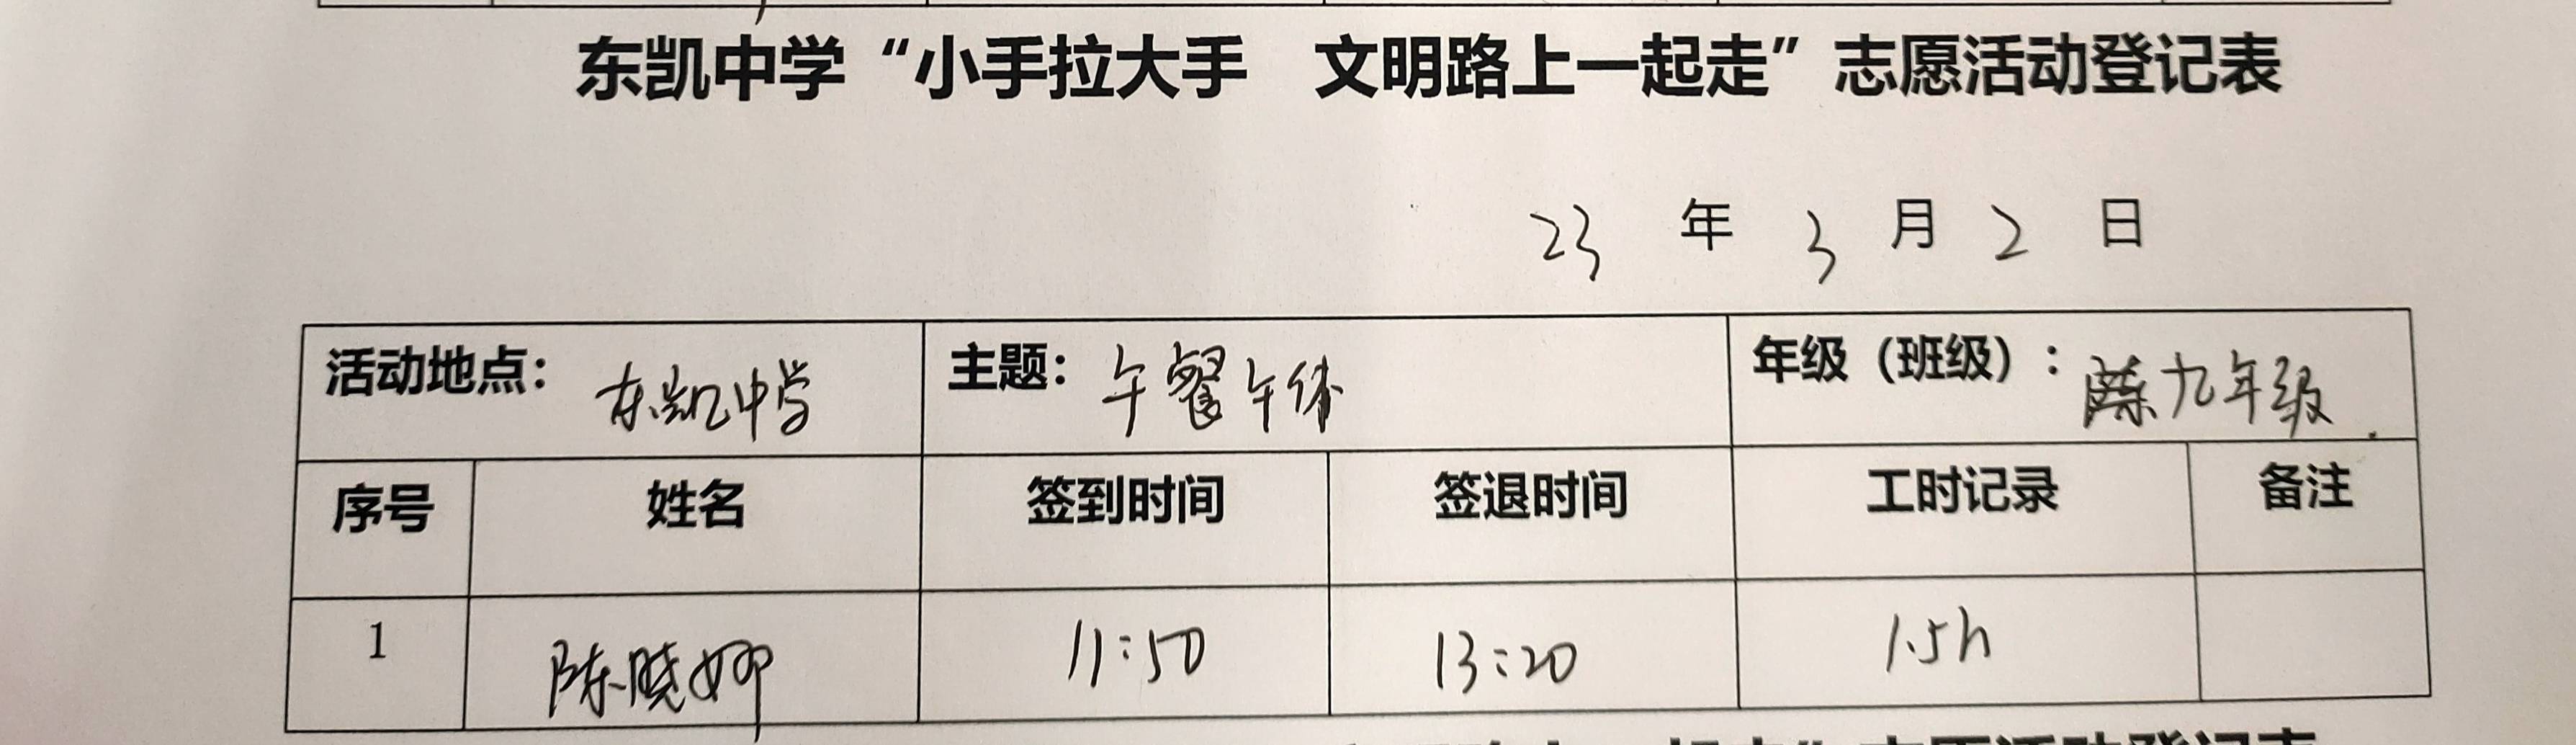 东凯中学“小手拉大手 文明路上一起走”志愿活动登记表
23 年 3 月 2 日
活动地点： 东凯中学 主题： 午餐午休 年级（班级）： 九年级
序号 姓名 签到时间 签退时间 工时记录 备注
1 陈晓娜 11:50 13:20 1.5h